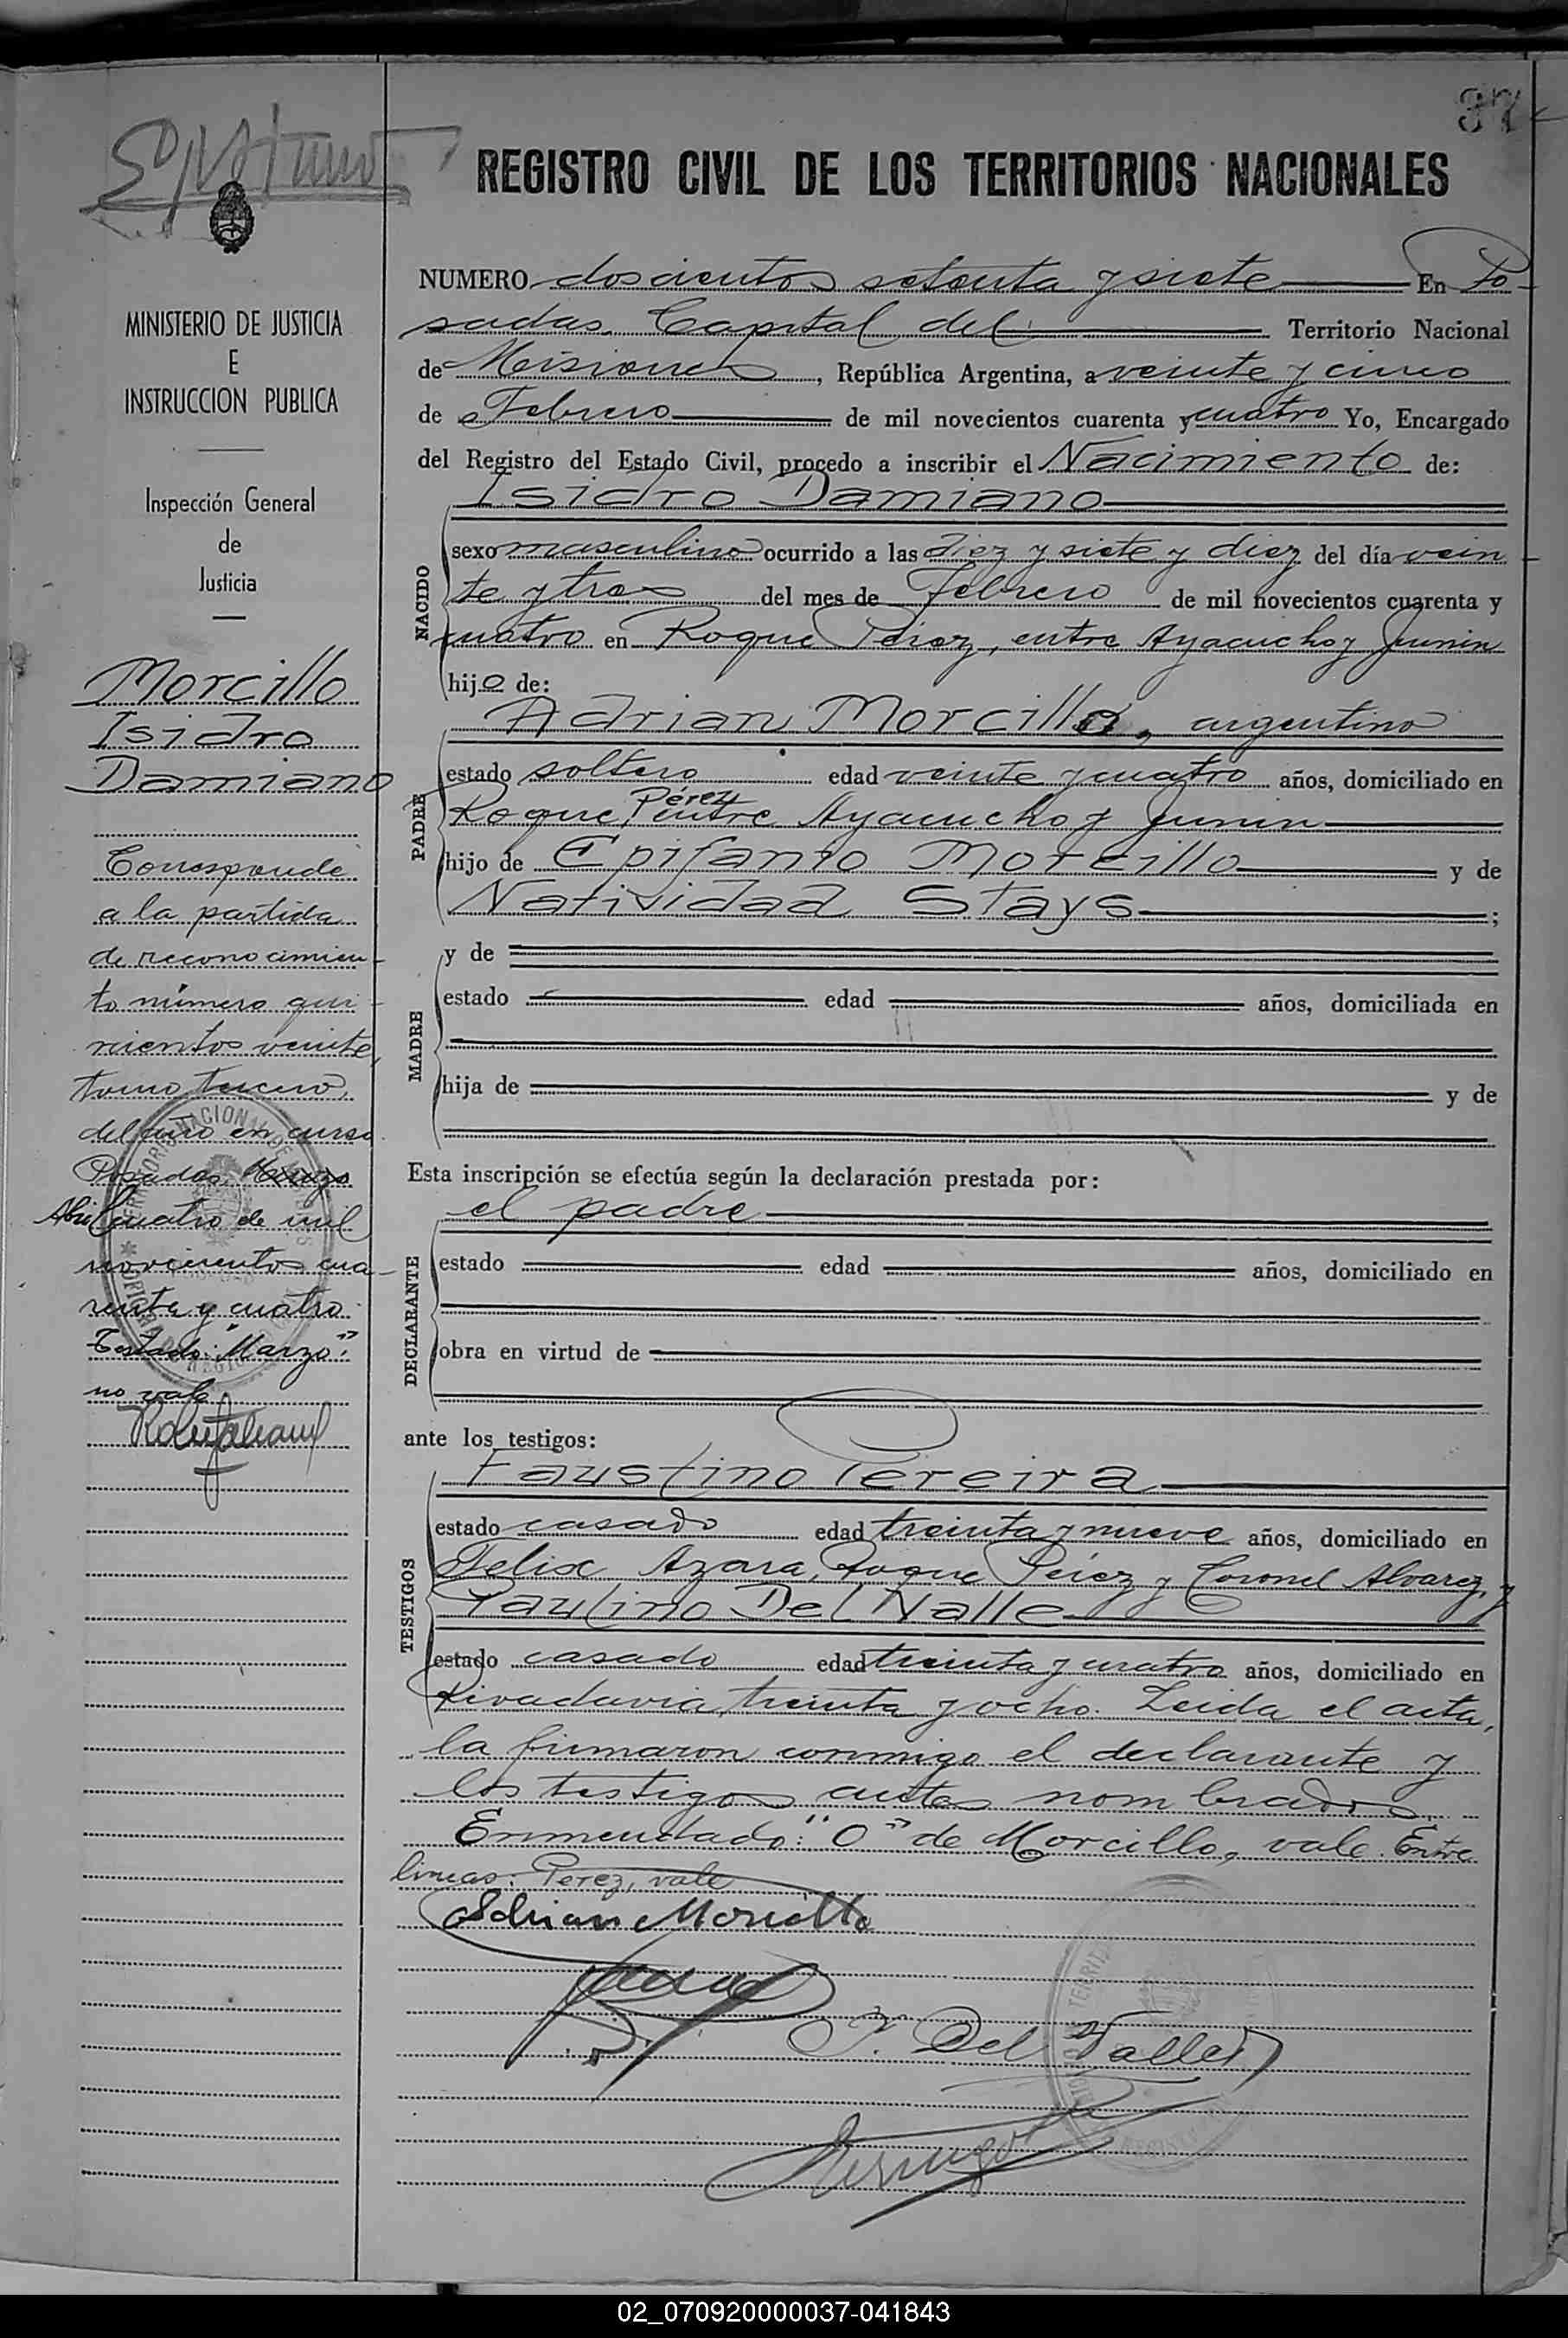 37
REGISTRO CIVIL DE LOS TERRITORIOS NACIONALES
MINISTERIO DE JUSTICIA
E
INSTRUCCION PUBLICA
Inspección General
de
Justicia
Morcillo
Isidro
Damiano
Corresponde
a la partida
de reconocimien-
to número qui-
nientos veinte,
tomo tercero,
del año en curso.
Posadas, Marzo
Abril cuatro de mil
novecientos cua-
renta y cuatro
Testado: "Marzo":
no vale
NUMERO doscientos setenta y siete En Po-
sadas, Capital del Territorio Nacional
de Misiones, República Argentina, a veinte y cinco
de Febrero de mil novecientos cuarenta y cuatro Yo, Encargado
del Registro del Estado Civil, procedo a inscribir el Nacimiento de:
Isidro Damiano
NACIDO
sexo masculino ocurrido a las diez y siete y diez del día vein-
te y tres del mes de Febrero de mil novecientos cuarenta y
cuatro en Roque Pérez, entre Ayacucho y Junin
hijo de:
Adrian Morcillo, argentino
PADRE
estado soltero edad veinte y cuatro años, domiciliado en
Pérez
Roque, entre Ayacucho y Junin
hijo de Epifanio Morcillo y de
Natividad Stays;
MADRE
y de
estado edad años, domiciliada en
hija de y de
Esta inscripción se efectúa según la declaración prestada por:
el padre
DECLARANTE
estado edad años, domiciliado en
obra en virtud de
ante los testigos:
Faustino Pereira
TESTIGOS
estado casado edad treinta y nueve años, domiciliado en
Felix Azara, Roque Pérez y Coronel Alvarez, y
Paulino Del Valle
estado casado edad treinta y cuatro años, domiciliado en
Rivadavia treinta y ocho. Leida el acta,
la firmaron conmigo el declarante y
los testigos antes nombrados.
Enmendado: "O" de Morcillo, vale. Entre
lineas: Perez, vale
Adrian Morcillo
P. Del Valle
02_070920000037-041843